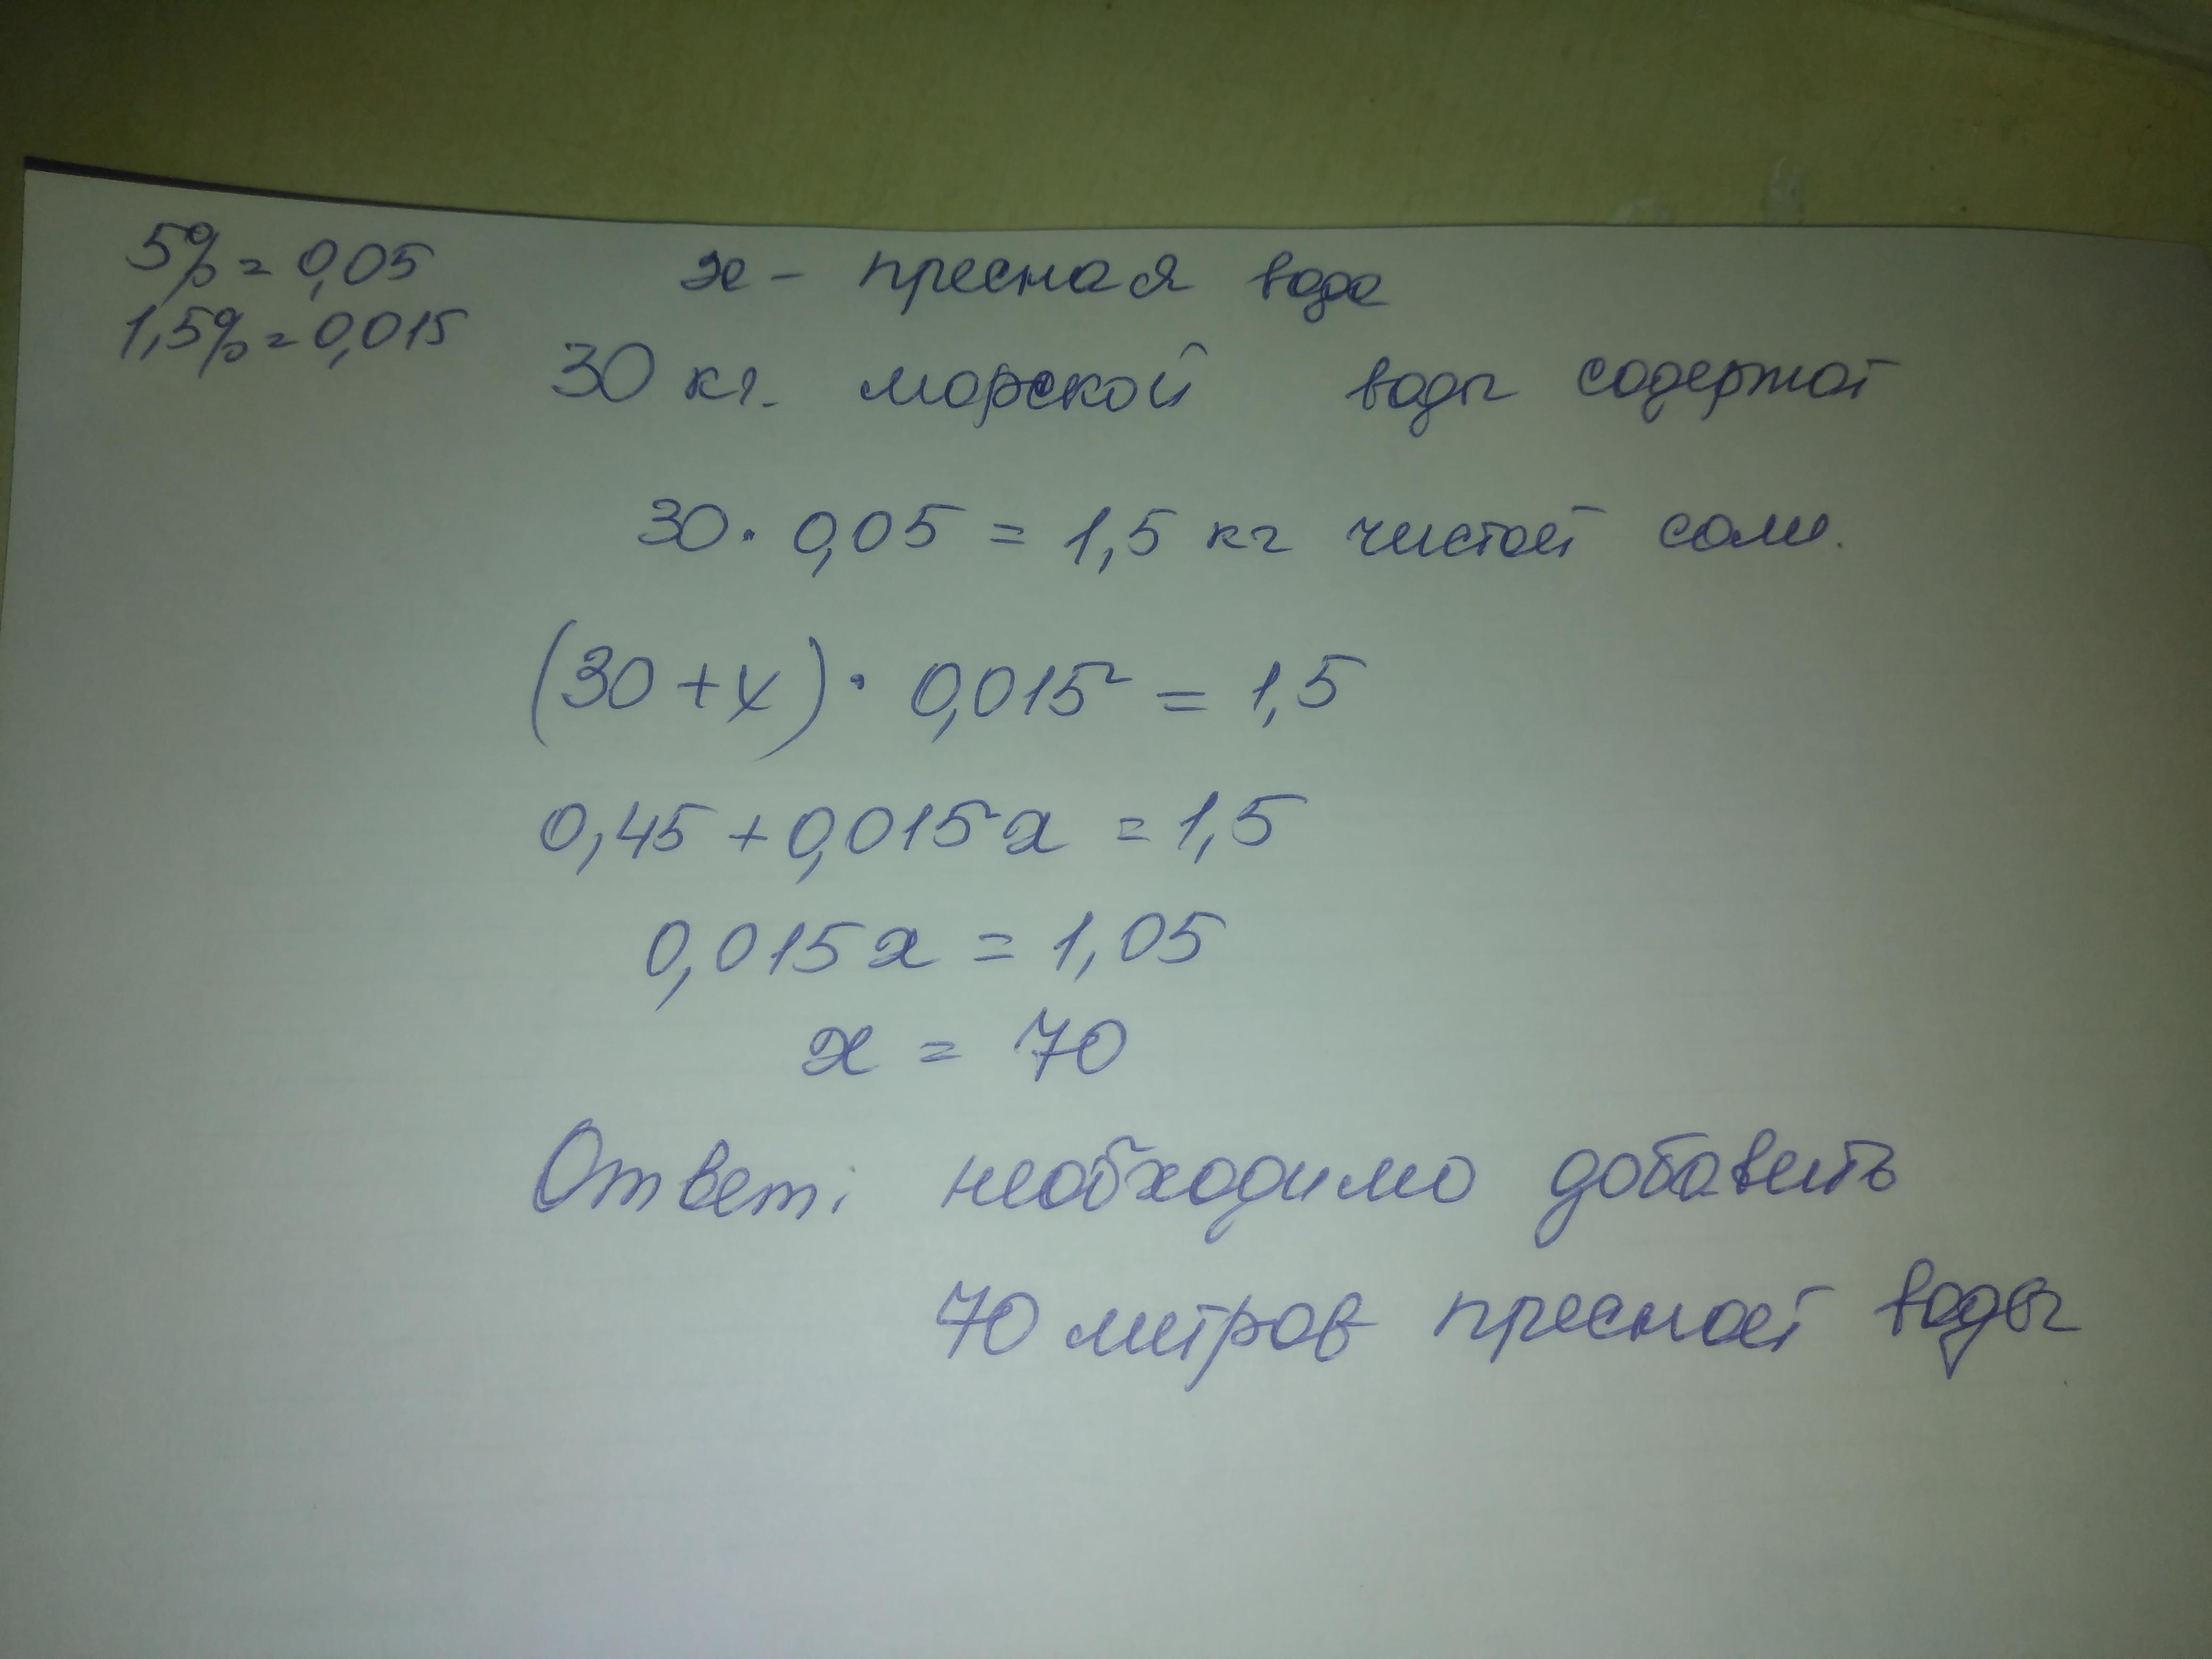 5% = 0,05
1,5% = 0,015
x - пресная вода
30 кг. морской воды содержат
30 · 0,05 = 1,5 кг чистой соли.
(30 + x) · 0,015 = 1,5
0,45 + 0,015x = 1,5
0,015x = 1,05
x = 70
Ответ: необходимо добавить
70 литров пресной воды